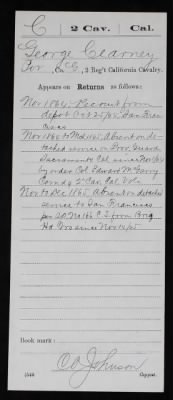 C | 2 Cav. | Cal.
George Clearney
Pvt, Co. C, 2 Reg't California Cavalry.
Appears on Returns as follows:
Nov 1864 Recruit from
depot Oct 25/64 San Fran
cisco
Nov 1864 to Mch 1865 Absent on de-
tached service on Prov. Guard
Sacramento Cal since Nov
by order Col Edward McGarry
Comdg 2" Cav Cal Vols
Nov to Dec 1865 Absent on detached
service to San Francisco
per S.O. No C.S. from Brig
Hd Qrs since Nov 14/65
Book mark:
Johnson
(546) Copyist.